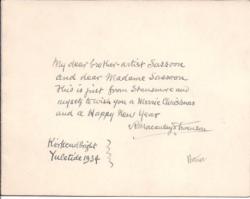 My dear brother-artist Sassoon
and dear Madame Sassoon
This is just from Stansmore and
myself to wish you a Merrie Christmas
and a Happy New Year
Kirkcudbright
Yuletide 1934